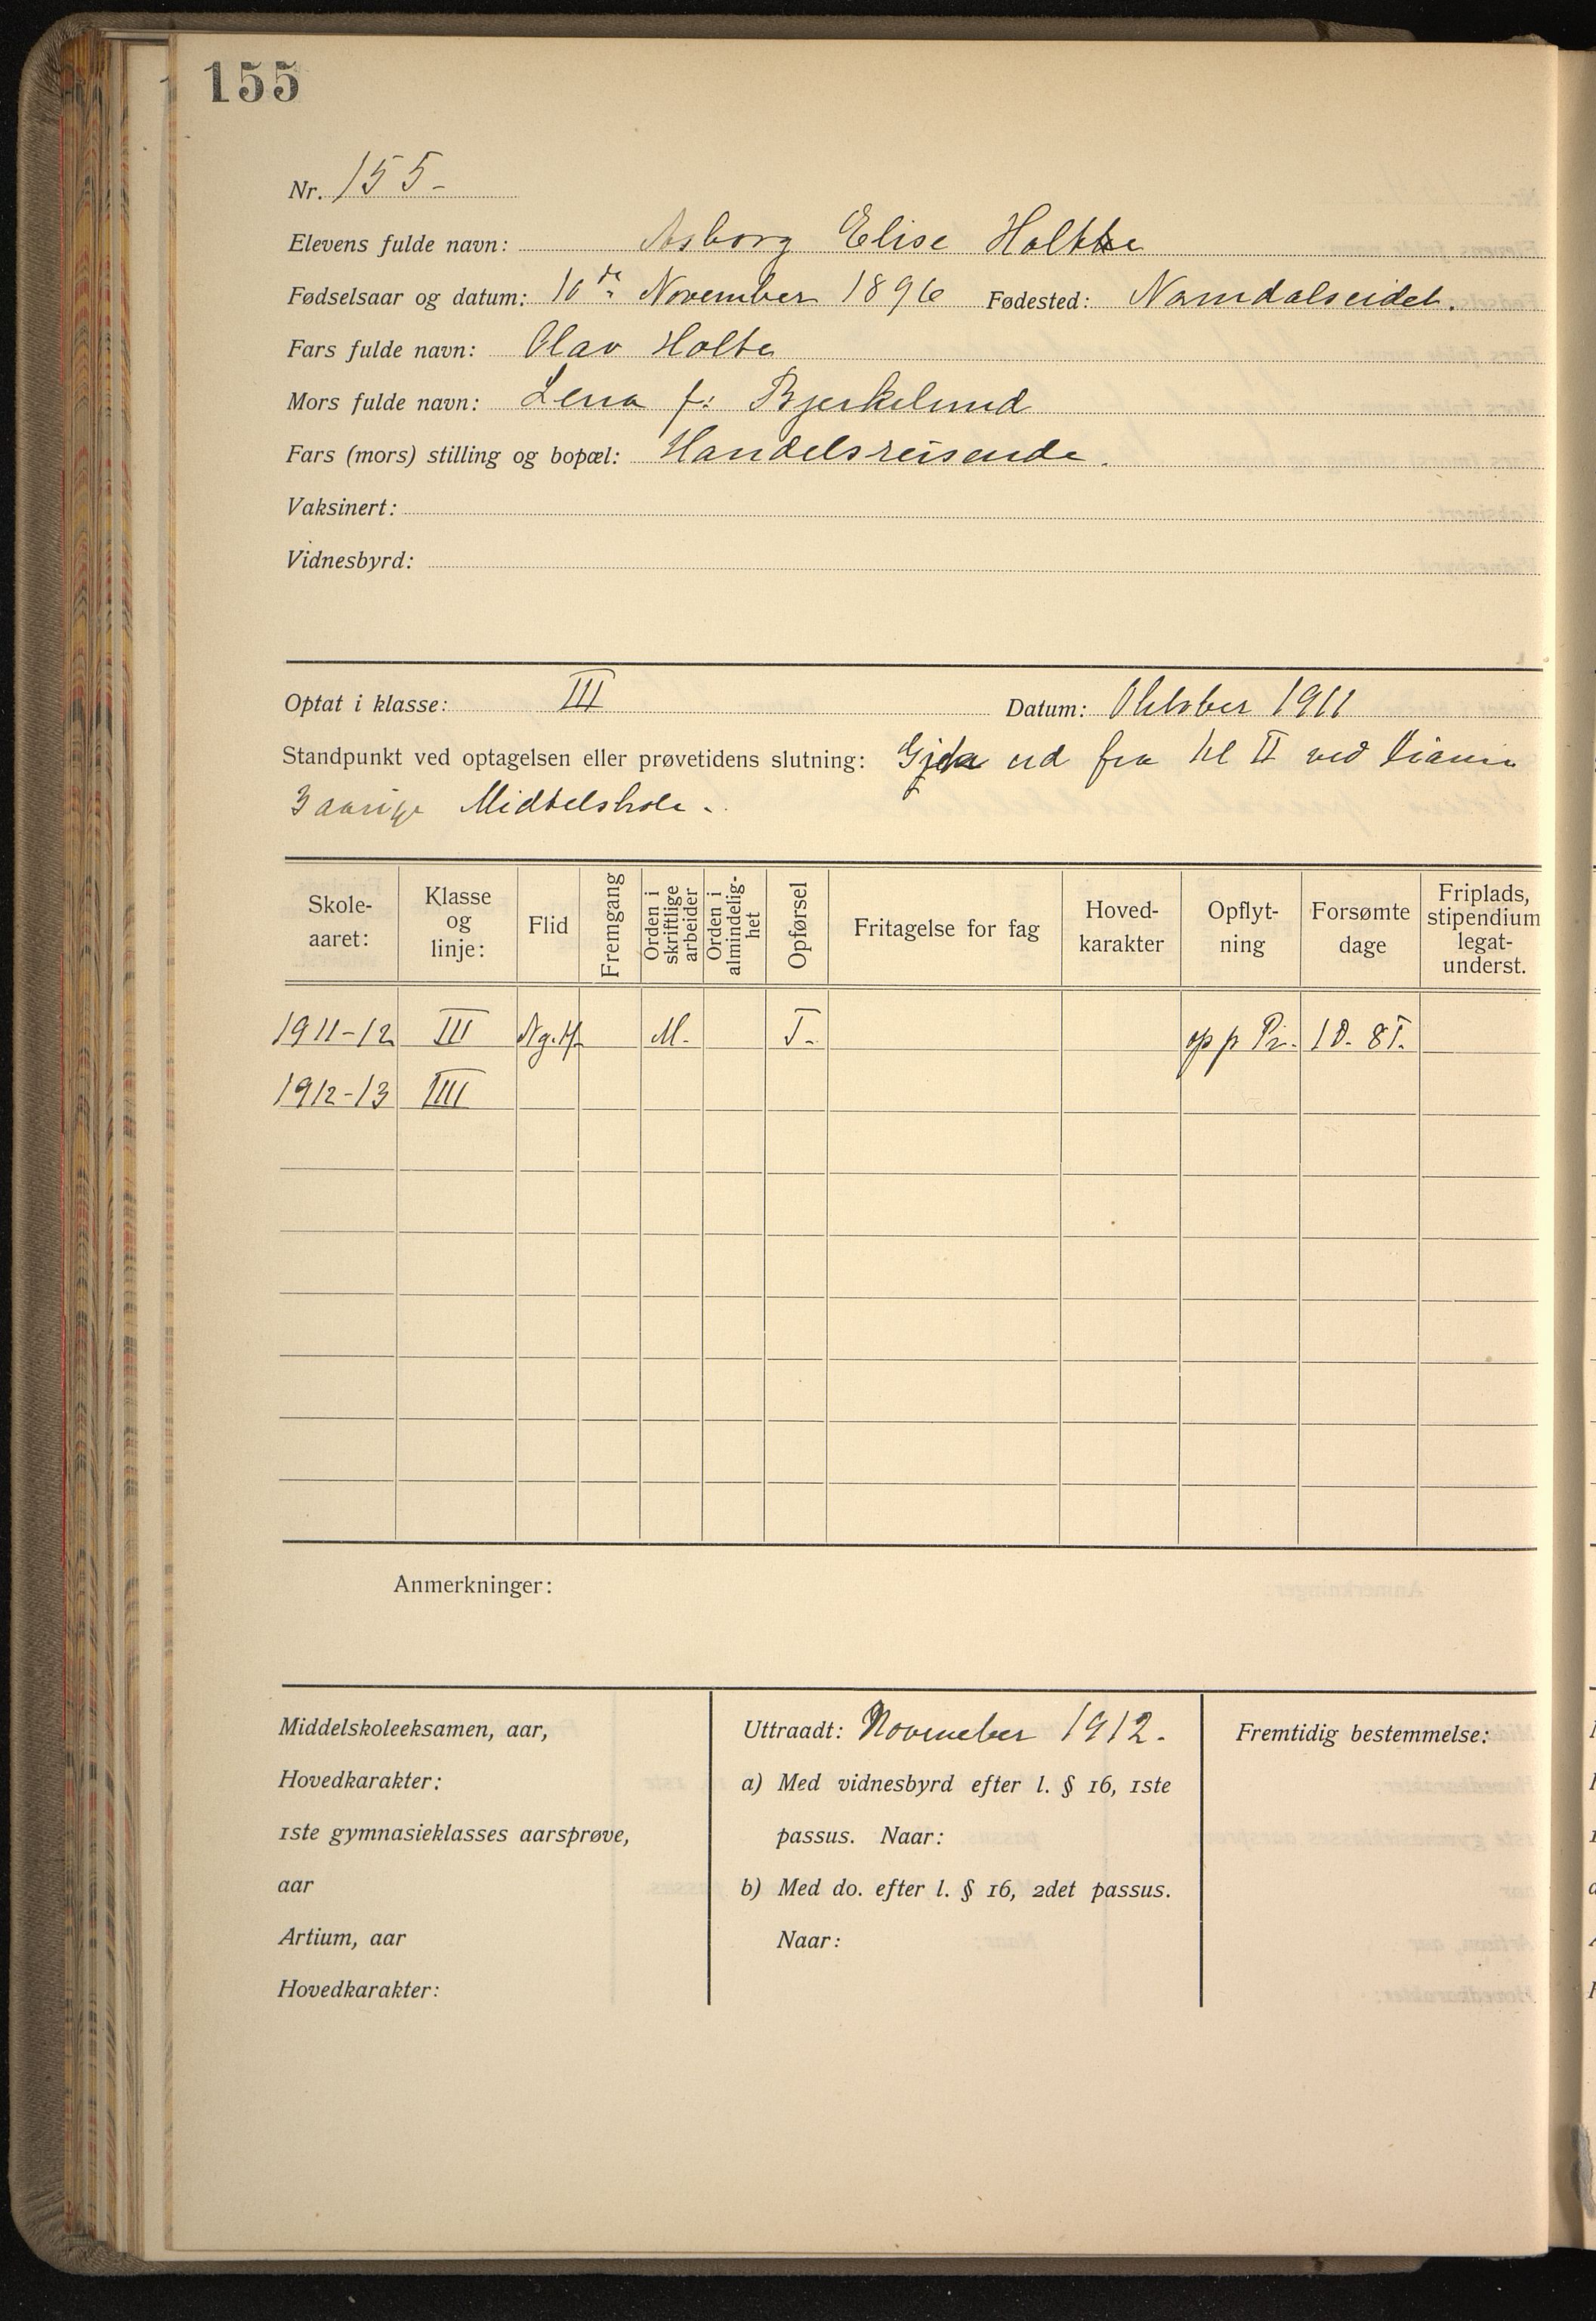 155
Nr. 155-
Elevens fulde navn: Asborg Elise Holte
Fødselsaar og datum: 10de November 1896 Fødested: Namdalseidet.
Fars fulde navn: Olav Holte
Mors fulde navn: Lena f: Bjerkelund
Fars (mors) stilling og bopæl: Handelsreisende.
Vaksinert:
Vidnesbyrd:
Optat i klasse: III Datum: Oktober 1911
Standpunkt ved optagelsen eller prøvetidens slutning: ud fra kl II ved
3 aarige Middelskole -
Skole-aaret: Klasse og linje: Flid Fremgang Orden i skriftlige arbeider Orden i almindelig-het Opførsel Fritagelse for fag Hoved-karakter Opflyt-ning Forsømte dage Friplads, stipendium legat-underst.
1911-12 III Ng.M. M- T- op p Pr. 1D. 8T.
1912-13 III
Anmerkninger:
Middelskoleeksamen, aar,
Hovedkarakter:
1ste gymnasieklasses aarsprøve,
aar
Artium, aar
Hovedkarakter:
Uttraadt: November 1912.
a) Med vidnesbyrd efter l. § 16, 1ste
passus. Naar:
b) Med do. efter l. § 16, 2det passus.
Naar:
Fremtidig bestemmelse: